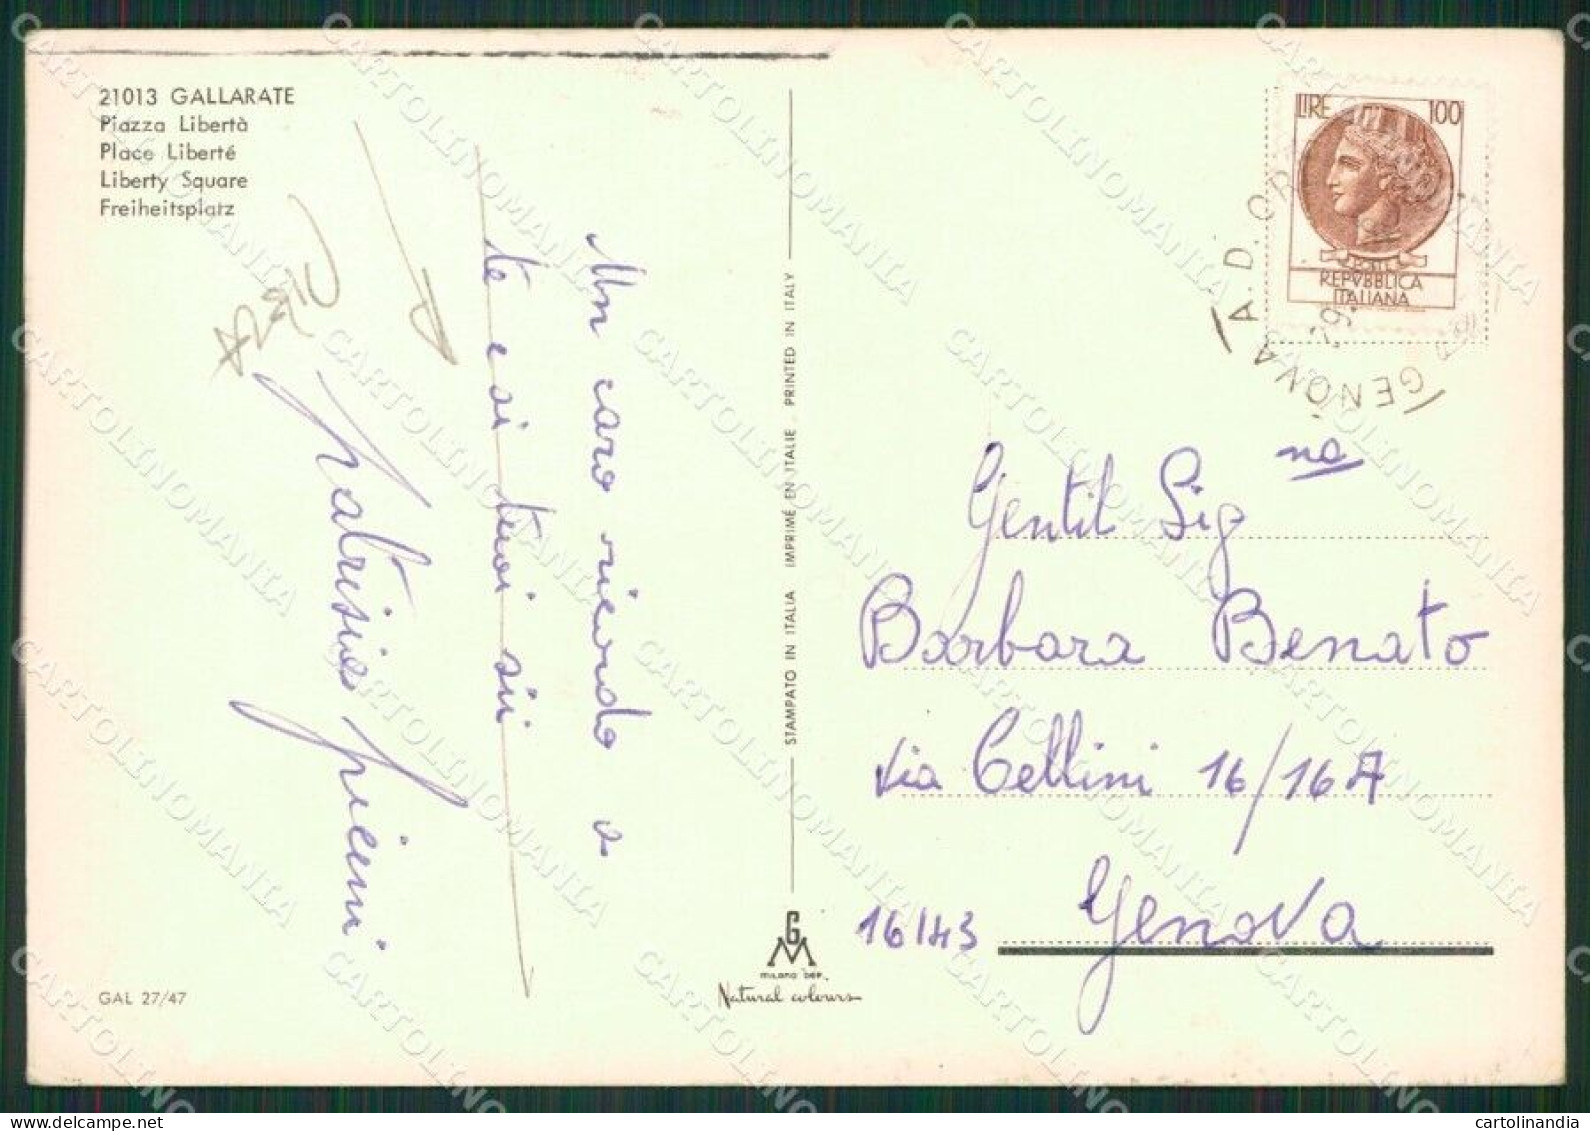 21013 GALLARATE
Piazza Libertà
Place Liberté
Liberty Square
Freiheitsplatz
Un caro ricordo a
te e ai tuoi sii
GAL 27/47
STAMPATO IN ITALIA IMPRIMÉ EN ITALIE PRINTED IN ITALY
GM
MILANO DEP.
Natural colours
LIRE 100
POSTE
REPVBBLICA
ITALIANA
GENOVA A.D.
Gentil Sig na
Barbara Benato
via Cellini 16/16A
16143 Genova
CARTOLINOMANIA
cartolinandia